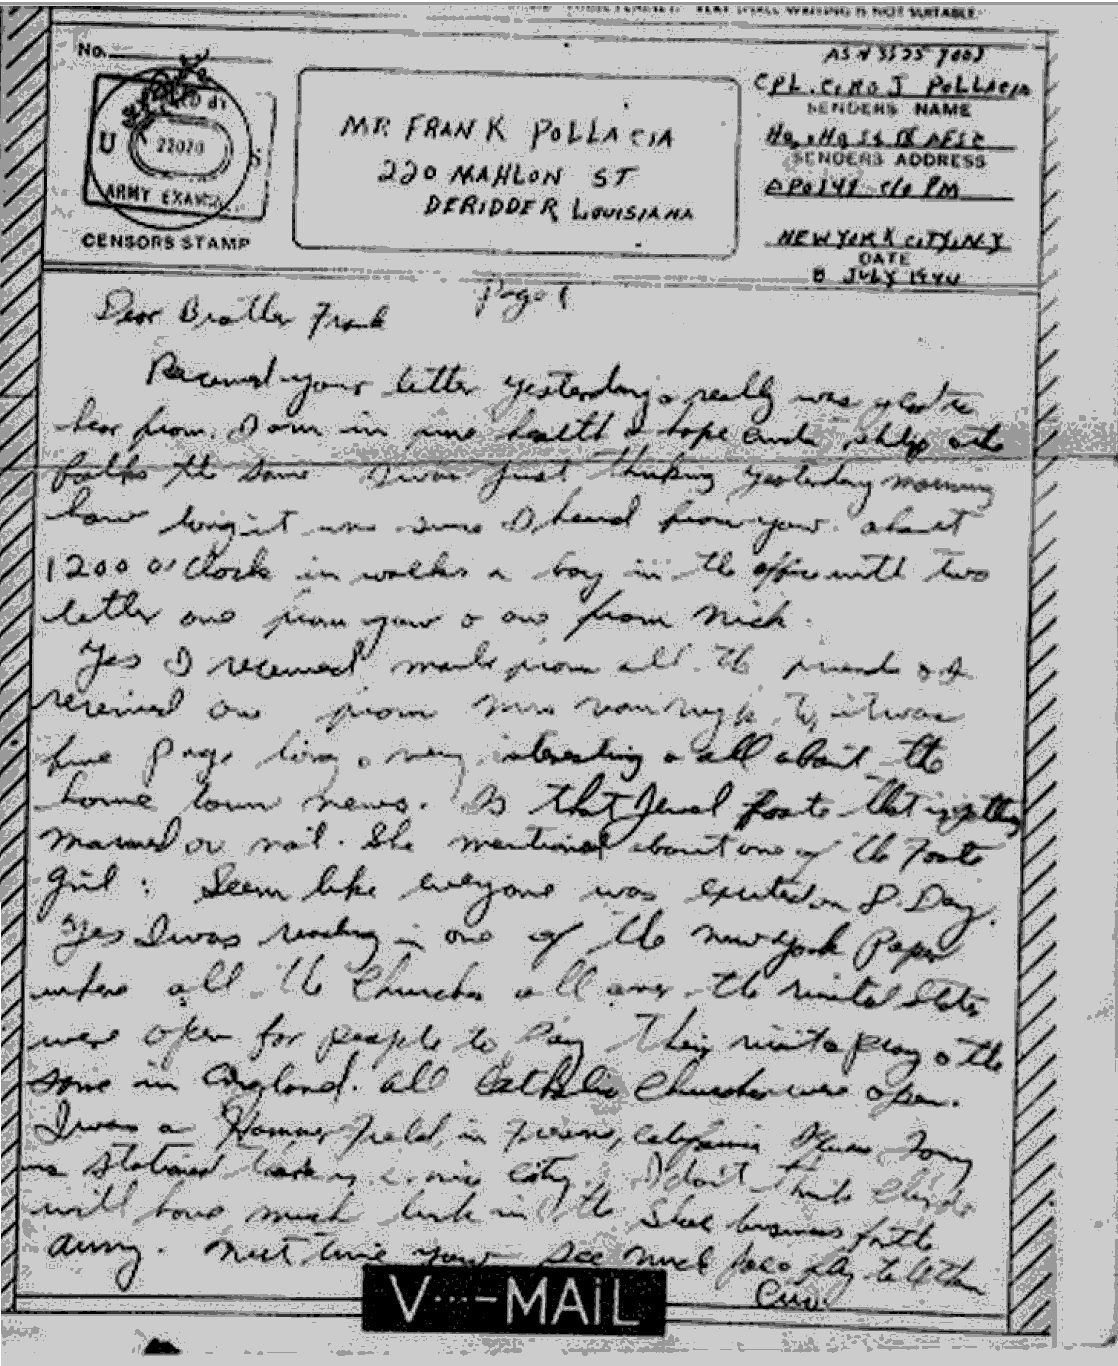 No.
U 22020 S
ARMY EXAM
CENSORS STAMP
MR FRANK POLLACIA
220 MAHLON ST
DERIDDER LOUISIANA
CPL. CIRO J POLLACIA
SENDERS NAME
SENDERS ADDRESS
APO 149 c/o PM
NEW YORK CITY, N.Y
DATE
8 JULY 1944
Page 1
Dear Brother Frank
Received your letter yesterday, really was glad to
hear from. I am in fine health & hope
folks the same I was just thinking yesterday morning
how long it was since I heard from you. about
1200 o'Clock in walks a boy in the office with two
letter one from you & one from Nick.
Yes I received mail from all the friends & I
received one from Mrs it was
five page long, very interesting & all about the
home town news. Is that Jewel Foote that is getting
married or not. She mentioned about one of the Foote
girl: Seem like everyone was excited on D. Day.
Yes I was reading in one of the New York Paper
where all the Churches all over the United States
were open for people to pay their visit & pray & the
same in England. all Catholic Churches were open.
I was a Hammer Field, in Fresno, California Tony
stationed nice city. I don't think
will have much luck in the business for the
army. Next time you see to tell them
Ciro.
V···-MAIL